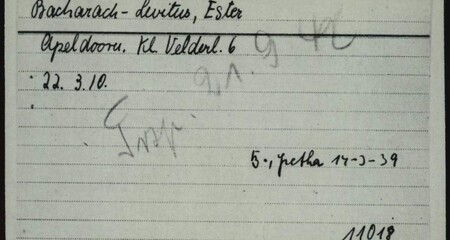 Bacharach-Levitus, Ester
Apeldoorn. Kl. Velderl. 6
22. 3.10.
5., petha 14-3-39
11018